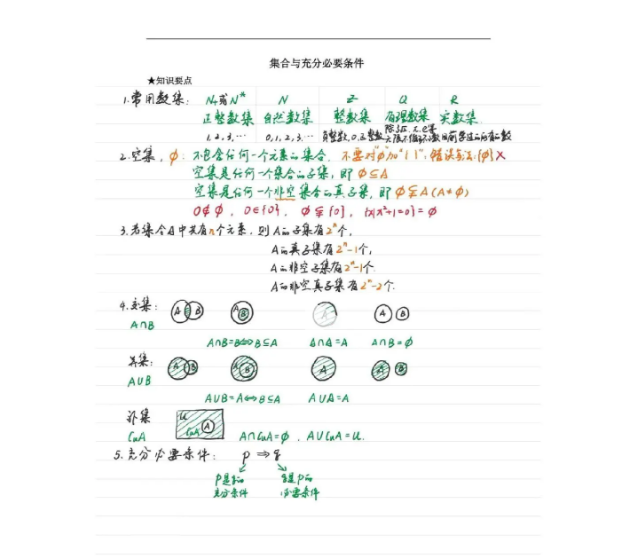 集合与充分必要条件
★知识要点
1.常用数集: N₊或N* N Z Q R
正整数集 自然数集 整数集 有理数集 实数集
1, 2, 3, … 0, 1, 2, 3, … 负整数, 0, 正整数
2.空集, ∅: 不包含任何一个元素的集合. 不要对"∅"加"{ }", 错误写法:{∅} ×
空集是任何一个集合的子集, 即 ∅⊆A
空集是任何一个非空集合的真子集, 即 ∅⫋A (A≠∅)
0∉∅, 0∈{0}, ∅⫋{0}, {x|x²+1=0}=∅
3.若集合A中共有n个元素, 则 A的子集有2ⁿ个,
A的真子集有2ⁿ-1个,
A的非空子集有2ⁿ-1个.
A的非空真子集有2ⁿ-2个.
4.交集: A B A B A B
A∩B
A∩B=B⇔B⊆A A∩A=A A∩B=∅
并集: A B A B A A B
A∪B
A∪B=A⇔B⊆A A∪A=A
补集 U
CᵤA CᵤA A A∩CᵤA=∅, A∪CᵤA=U.
5.充分必要条件: p ⇒ q
p是q的 q是p的
充分条件 必要条件